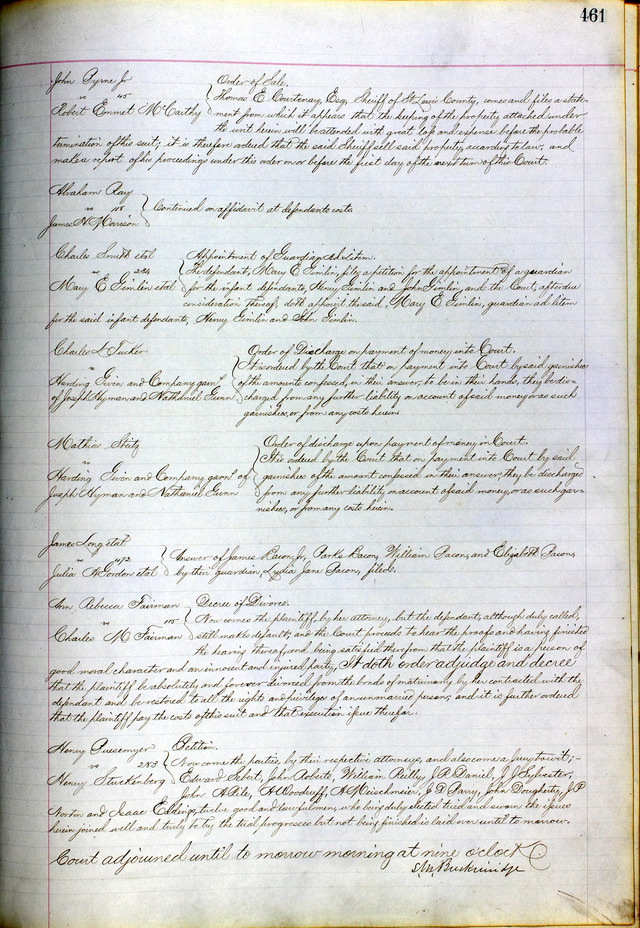 461
John Byrne Jr Order of Sale.
vs 45 Thomas E Courtenay, Esq, Sheriff of St Louis County, comes and files a state-
Robert Emmet McCarthy ment from which it appears that the keeping of the property attached under
the writ herein will be attended with great loss and expense before the probable
termination of this suit; it is therefore ordered that the said Sheriff sell said property according to law, and
make a report of his proceedings under this order on or before the first day of the next term of this Court.
Abraham Ray
vs 108 Continued on affidavit at defendants costs.
James H Morrison
Charles Smith et al Appointment of Guardian ad litem.
vs 234 The defendant, Mary E Gimlin, files a petition for the appointment of a guardian
Mary E Gimlin et al for the infant defendants, Henry Gimlin and John Gimlin, and the Court, after due
consideration thereof, doth appoint the said, Mary E Gimlin, guardian ad litem
for the said infant defendants, Henry Gimlin and John Gimlin.
Charles L Tucker Order of Discharge on payment of money into Court.
vs It is ordered by the Court that on payment into Court by said garnishees
Harding Givin and Company garn of the amounts confessed, in their answer, to be in their hands, they be dis-
of Joseph Hyman and Nathaniel Gunn charged from any further liability on account of said money or as such
garnishees, or from any costs herein
Mathias Order of discharge upon payment of money in Court.
vs It is ordered by the Court that on payment into Court by said
Harding Givin and Company garns of garnishees of the amount confessed in their answer; they be discharged
Joseph Hyman and Nathaniel Gunn from any further liability on account of said money, or as such gar-
nishees, or from any costs herein.
James Long et al
vs 172 Answer of James Bacon, Jr, Parks Bacon, William Bacon, and Elizabeth Bacon,
Julia A Gordon et al by their guardian, Lydia Jane Bacon, filed.
Ann Rebecca Fairman Decree of Divorce.
vs 115 Now comes the plaintiff, by her attorney, but the defendant, although duly called,
Charles M Fairman still makes default; and the Court proceeds to hear the proofs and having finished
the hearing thereof, and being satisfied therefrom that the plaintiff is a person of
good moral character and an innocent and injured party, It doth order adjudge and decree
that the plaintiff be absolutely and forever divorced, from the bonds of matrimony by her contracted with the
defendant and be restored to all the rights and privilege of an unmarried person; and it is further ordered
that the plaintiff pay the costs of this suit and that execution issue therefor.
Henry Petition.
vs 253 Now come the parties, by their respective attorneys, and also come a Jury to wit;-
Henry Stuckenberg Edward Sebert, John Roberts, William Reilly, J R Daniel, J J Sylvester,
John A Pile, H Woodruff, H Meischmeier, J D Parry, John Dougherty, J P
Norton and Isaac Eddings, twelve good and lawful men, who being duly elected tried and sworn the issue
herein joined well and truly to try the trial progresses but not being finished is laid over until to morrow.
Court adjourned until to morrow morning at nine oclock